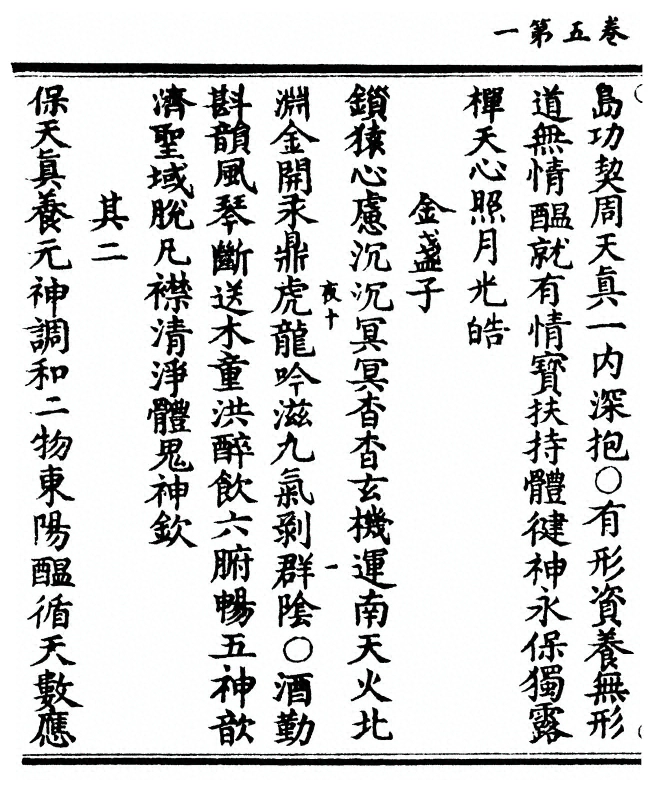 卷五第一
島功契周天眞一内深抱○有形資養無形
道無情醞就有情寳扶持體徤神永保獨露
樿天心照月光皓
金盞子
鎖猿心慮沉沉冥冥杳杳玄機運南天火北
夜十 一
淵金開汞鼎虎龍吟滋九氣剥群陰○酒勤
斟韻風琴斷送木童洪醉飲六腑暢五神歆
濟聖域脫凡襟清淨體鬼神欽
其二
保天眞養元神調和二物東陽醞循天數應